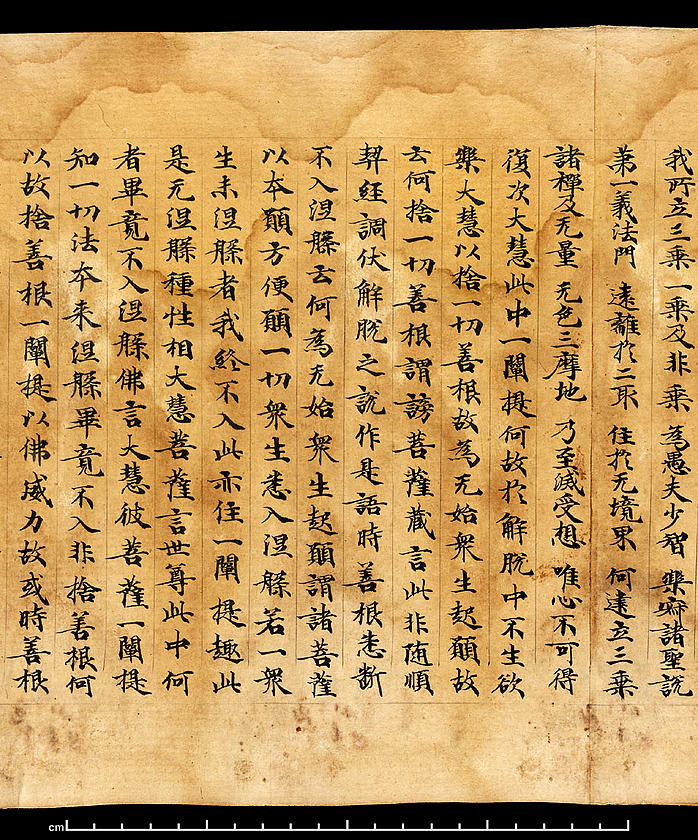 我所立三乘一乘及非乘 為愚夫少智 樂寂諸聖說
第一義法門 遠離於二取 住於无境界 何建立三乘
諸禪及无量 无色三摩地 乃至滅受想 唯心不可得
復次大慧此中一闡提何故於解脫中不生欲
樂大慧以捨一切善根故為无始眾生起願故
云何捨一切善根謂謗菩薩藏言此非随順
契經調伏解脫之說作是語時善根悉斷
不入涅槃云何為无始眾生起願謂諸菩薩
以本願方便願一切眾生悉入涅槃若一眾
生未涅槃者我終不入此亦住一闡提趣此
是无涅槃種性相大慧菩薩言世尊此中何
者畢竟不入涅槃佛言大慧彼菩薩一闡提
知一切法本来涅槃畢竟不入非捨善根何
以故捨善根一闡提以佛威力故或時善根
cm